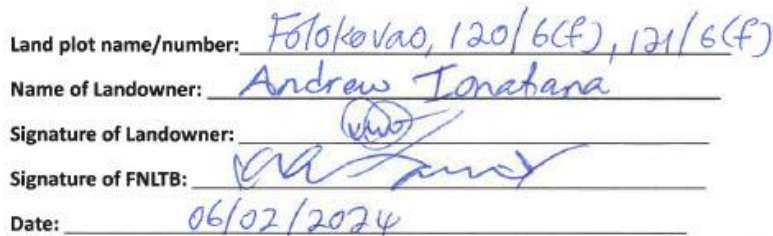 Land plot name/number: Folokovao, 120/6(f), 121/6(f)
Name of Landowner: Andrew Ionatana
Signature of Landowner:
Signature of FNLTB:
Date: 06/02/2024